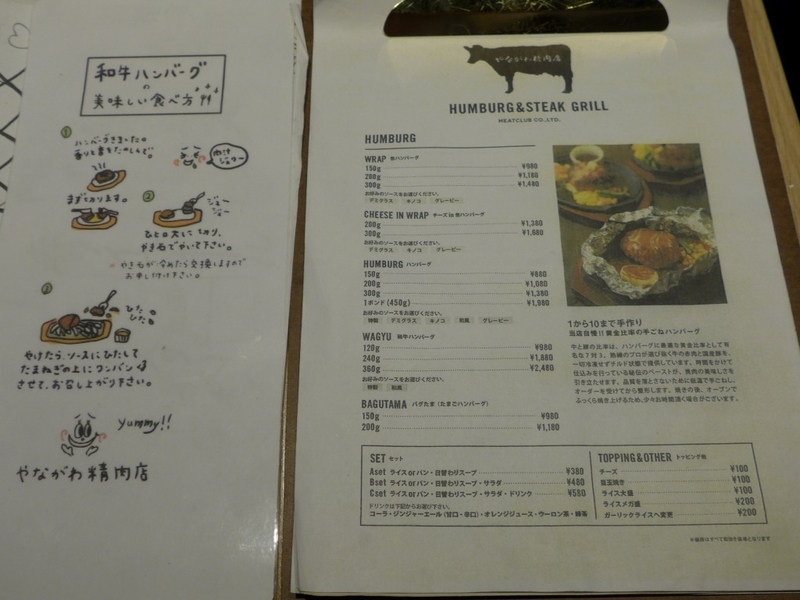 和牛ハンバーグ
の
美味しい食べ方
①
ハンバーグきましたの
香りと音をたのしんで。
肉汁
ジュワー
まず切ります。
②
ジュー
ジュー
ひと口大に切り、
やき石でやいて下さい。
※やき石が冷めたら交換しますので
お申し付け下さい。
③
ひた
ひた
やけたら、ソースにひたして
たまねぎの上にワンバン
させて、お召し上がり下さい。
yummy!!
やながわ精肉店
やながわ精肉店
HUMBURG&STEAK GRILL
MEATCLUB CO.,LTD.
HUMBURG
WRAP 包ハンバーグ
150g ¥980
200g ¥1,180
300g ¥1,480
お好みのソースをお選びください。
デミグラス キノコ グレービー
CHEESE IN WRAP チーズ in 包ハンバーグ
200g ¥1,380
300g ¥1,680
お好みのソースをお選びください。
デミグラス キノコ グレービー
HUMBURG ハンバーグ
150g ¥880
200g ¥1,080
300g ¥1,380
1ポンド(450g) ¥1,980
お好みのソースをお選びください。
特製 デミグラス キノコ 和風 グレービー
WAGYU 和牛ハンバーグ
120g ¥980
240g ¥1,880
360g ¥2,480
お好みのソースをお選びください。
特製 和風
BAGUTAMA バグたま(たまごハンバーグ)
150g ¥980
200g ¥1,180
1から10まで手作り
当店自慢!!黄金比率の手ごねハンバーグ
牛と豚の比率は、ハンバーグに最適な黄金比率として有
名な7対3。熟練のプロが選び抜く牛の赤肉と国産豚を、
一切冷凍せずチルド状態で提供しています。時間をかけて
仕込みを行っている秘伝のペーストが、挽肉の美味しさを
引き立たせます。品質を落とさないために低温で手ごねし、
オーダーを受けてから整形します。焼きの後、オーブンで
ふっくら焼き上げるため、少々お時間頂く場合がございます。
SET セット
Aset ライス or パン・日替わりスープ ¥380
Bset ライス or パン・日替わりスープ・サラダ ¥480
Cset ライス or パン・日替わりスープ・サラダ・ドリンク ¥580
ドリンクは下記からお選び下さい。
コーラ・ジンジャーエール(甘口・辛口)・オレンジジュース・ウーロン茶・緑茶
TOPPING&OTHER トッピング他
チーズ ¥100
目玉焼き ¥100
ライス大盛 ¥100
ライスメガ盛 ¥200
ガーリックライスへ変更 ¥200
※価格はすべて税別価格となります